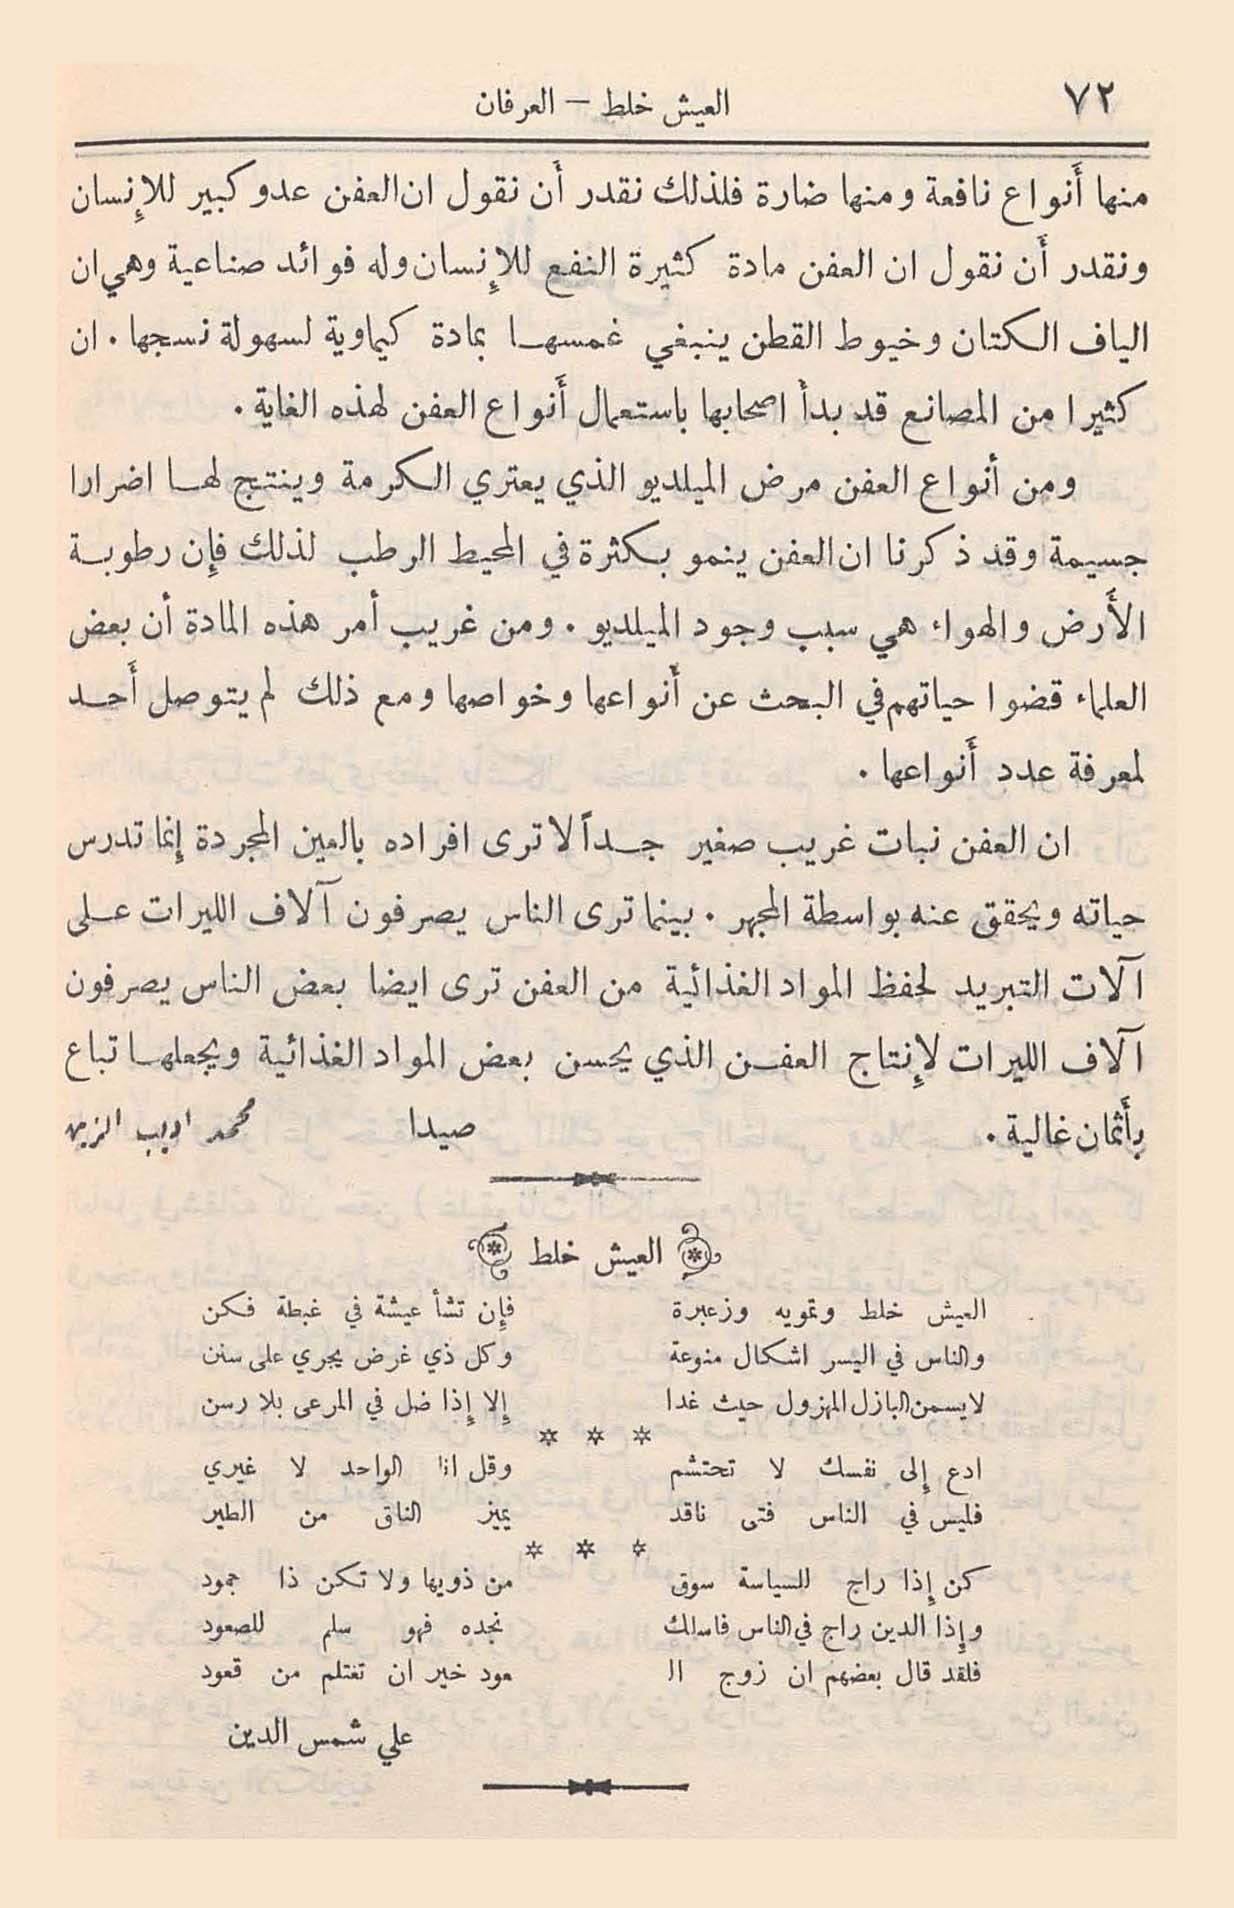 ٧٢
العيش خلط — العرفان
منها أَنواع نافعة ومنها ضارة فلذلك نقدر أَن نقول ان العفن عدو كبير للإِنسان
ونقدر أَن نقول ان العفن مادة كثيرة النفع للإِنسان وله فوائد صناعية وهي ان
الياف الكتان وخيوط القطن ينبغي غمسها بمادة كيماوية لسهولة نسجها . ان
كثيرا من المصانع قد بدأ اصحابها باستعمال أَنواع العفن لهذه الغاية .
ومن أنواع العفن مرض الميلديو الذي يعتري الكرمة وينتج لها اضرارا
جسيمة وقد ذكرنا ان العفن ينمو بكثرة في المحيط الرطب لذلك فإِن رطوبة
الأَرض والهواء هي سبب وجود الميلديو . ومن غريب أمر هذه المادة أن بعض
العلماء قضوا حياتهم في البحث عن أَنواعها وخواصها ومع ذلك لم يتوصل أَحد
لمعرفة عدد أَنواعها .
ان العفن نبات غريب صغير جداً لا ترى افراده بالعين المجردة إِنما تدرس
حياته ويحقق عنه بواسطة المجهر . بينما ترى الناس يصرفون آلاف الليرات على
آلات التبريد لحفظ المواد الغذائية من العفن ترى ايضا بعض الناس يصرفون
آلاف الليرات لإِنتاج العفن الذي يحسن بعض المواد الغذائية ويجعلها تباع
بأَثمان غالية . صيدا محمد اديب الزين
العيش خلط
العيش خلط وتمويه وزعبرة فإِن تشأ عيشة في غبطة فكن
والناس في اليسر اشكال منوعة وكل ذي غرض يجري على سنن
لا يسمن البازل المهزول حيث غدا إِلا إِذا ضل في المرعى بلا رسن
* * *
ادع إِلى نفسك لا تحتشم وقل انا الواحد لا غيري
فليس في الناس فتى ناقد يميز الناق من الطير
* * *
كن إِذا راج للسياسة سوق من ذويها ولا تكن ذا جمود
وإِذا الدين راج في الناس فاسالك نجده فهو سلم للصعود
فلقد قال بعضهم ان زوج الـ عود خير ان تغتلم من قعود
علي شمس الدين